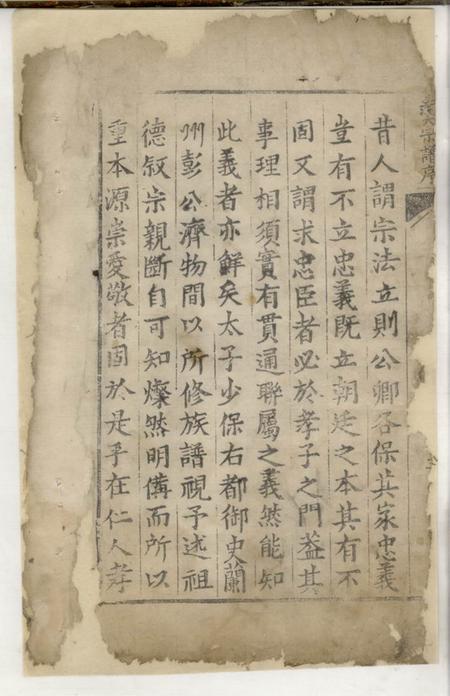 宗譜序
昔人謂宗法立則公卿各保其家忠義
豈有不立忠義既立朝廷之本其有不
固又謂求忠臣者必於孝子之門葢其
事理相須實有貫通聯屬之義然能知
此義者亦鮮矣太子少保右都御史蘭
州彭公濟物間以所修族譜視予述祖
德叙宗親斷自可知燦然明備而所以
重本源崇愛敬者固於是乎在仁人孝